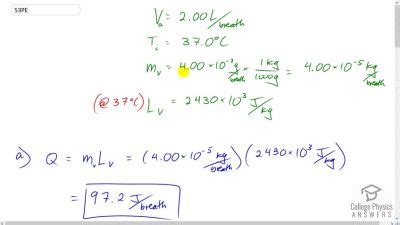 53PE
Va = 2.00 L/breath
Ti = 37.0°C
mv = 4.00 × 10⁻² g/breath × 1 kg/1000g = 4.00 × 10⁻⁵ kg/breath
(@ 37°C) Lv = 2430 × 10³ J/kg
a) Q = mvLv = (4.00 × 10⁻⁵ kg/breath)(2430 × 10³ J/kg)
= 97.2 J/breath
College Physics
ANSWERS